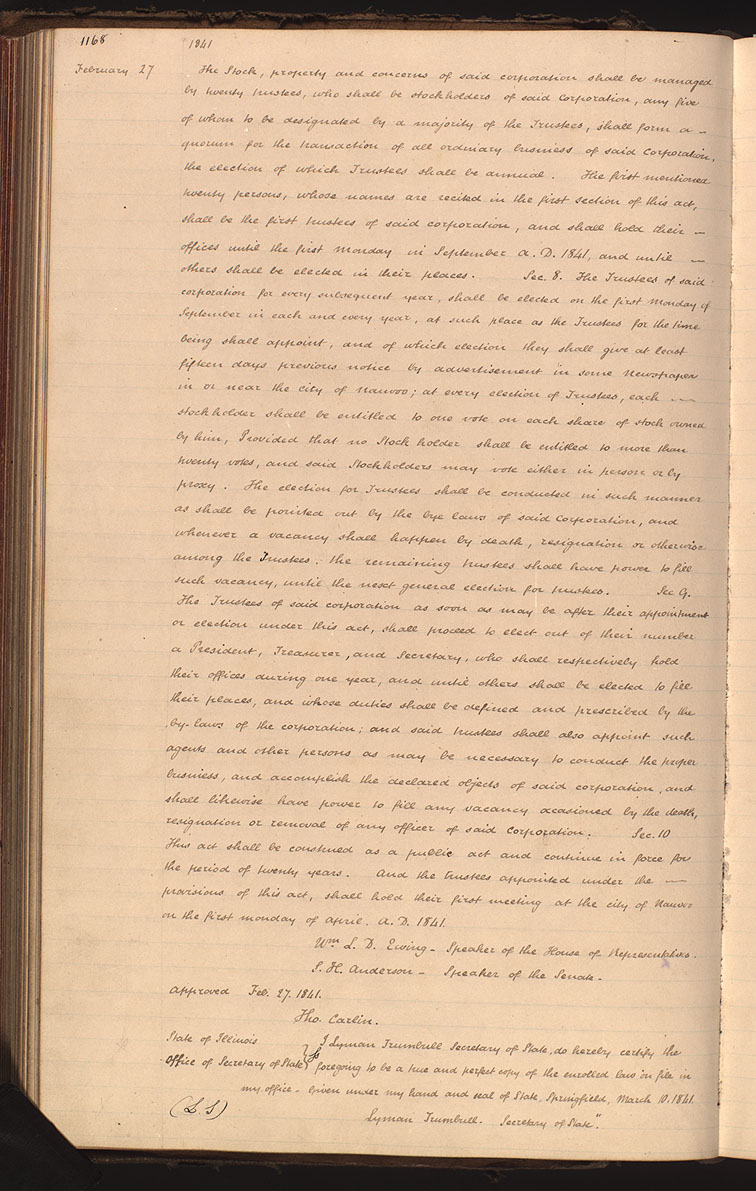 1168
1841
February 27
The Stock, property and concerns of said corporation shall be managed
by twenty trustees, who shall be stockholders of said Corporation, any five
of whom to be designated by a majority of the Trustees, shall form a –
quorum for the transaction of all ordinary business of said Corporation,
the election of which Trustees shall be annual. The first mentioned
twenty persons, whose names are recited in the first section of this act,
shall be the first trustees of said corporation, and shall hold their –
offices until the first Monday in September A. D. 1841, and until –
others shall be elected in their places. Sec. 8. The Trustees of said
corporation for every subsequent year, shall be elected on the first Monday of
September in each and every year, at such place as the Trustees for the time
being shall appoint, and of which election they shall give at least
fifteen days previous notice by advertisement in some Newspaper
in or near the city of Nauvoo; at every election of Trustees, each –
stockholder shall be entitled to one vote on each share of stock owned
by him, Provided that no Stock holder shall be entitled to more than
twenty votes, and said Stockholders may vote either in person or by
proxy. The election for Trustees shall be conducted in such manner
as shall be pointed out by the bye laws of said Corporation, and
whenever a vacancy shall happen by death, resignation or otherwise
among the Trustees: the remaining trustees shall have power to fill
such vacancy, until the next general election for trustees. Sec 9.
The Trustees of said corporation as soon as may be after their appointment
or election under this act, shall proceed to elect out of their number
a President, Treasurer, and Secretary, who shall respectively hold
their offices during one year, and until others shall be elected to fill
their places, and whose duties shall be defined and prescribed by the
by-laws of the corporation; and said trustees shall also appoint such
agents and other persons as may be necessary to conduct the proper
business, and accomplish the declared objects of said corporation, and
shall likewise have power to fill any vacancy occasioned by the death,
resignation or removal of any officer of said Corporation. Sec. 10
This act shall be construed as a public act and continue in force for
the period of twenty years. And the trustees appointed under the –
provisions of this act, shall hold their first meeting at the city of Nauvoo
on the first monday of april. A. D. 1841.
Wm L. D. Ewing – Speaker of the House of Representatives.
S. H. Anderson – Speaker of the Senate –
approved Feb. 27. 1841.
Tho. Carlin.
State of Illinois
Office of Secretary of State } Ss
I Lyman Trumbull Secretary of State, do hereby certify the
foregoing to be a true and perfect copy of the enrolled law on file in
my office – Given under my hand and seal of State, Springfield, March 10. 1841.
(L S)
Lyman Trumbull – Secretary of State."